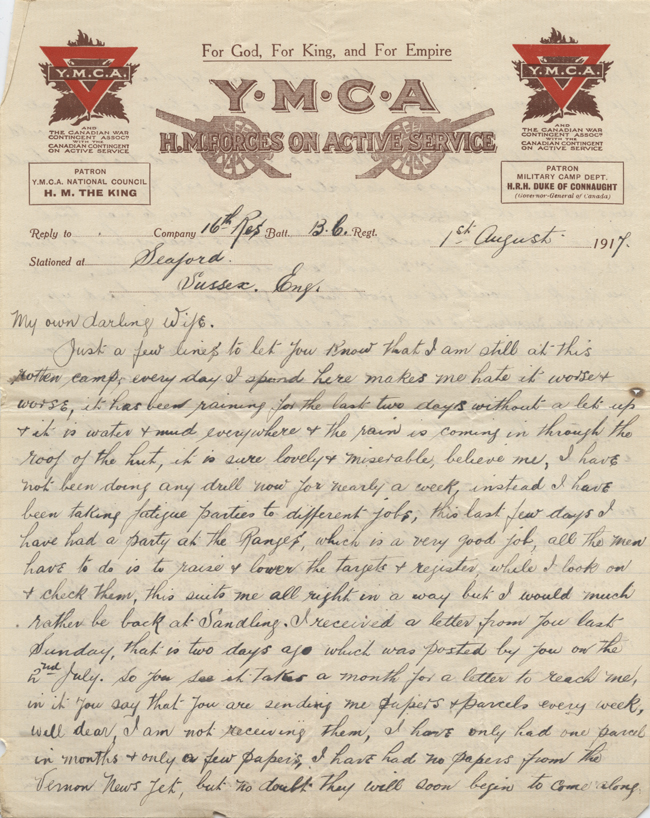 For God, For King, and For Empire
Y.M.C.A.
AND
THE CANADIAN WAR
CONTINGENT ASSOCN
WITH THE
CANADIAN CONTINGENT
ON ACTIVE SERVICE
Y·M·C·A
H.M. FORCES ON ACTIVE SERVICE
Y.M.C.A.
AND
THE CANADIAN WAR
CONTINGENT ASSOCN
WITH THE
CANADIAN CONTINGENT
ON ACTIVE SERVICE
PATRON
Y.M.C.A. NATIONAL COUNCIL
H. M. THE KING
PATRON
MILITARY CAMP DEPT.
H.R.H. DUKE OF CONNAUGHT
(Governor-General of Canada)
Reply to Company 16th Res Batt. B.C. Regt. 1st August 1917.
Stationed at Seaford.
Sussex. Eng.
My own darling Wife.
Just a few lines to let you know that I am still at this
rotten camp, every day I spend here makes me hate it worse &
worse, it has been raining for the last two days without a let up
& it is water & mud everywhere & the rain is coming in through the
roof of the hut, it is sure lovely & miserable, believe me, I have
not been doing any drill now for nearly a week, instead I have
been taking fatigue parties to different jobs, this last few days I
have had a party at the Ranges, which is a very good job, all the men
have to do is to raise & lower the targets & register, while I look on
& check them, this suits me all right in a way but I would much
rather be back at Sandling. I received a letter from you last
Sunday, that is two days ago which was posted by you on the
2nd July. So you see it takes a month for a letter to reach me,
in it you say that you are sending me papers & parcels every week,
well dear, I am not receiving them, I have only had one parcel
in months & only a few papers, I have had no papers from the
Vernon News yet, but no doubt they will soon begin to come along